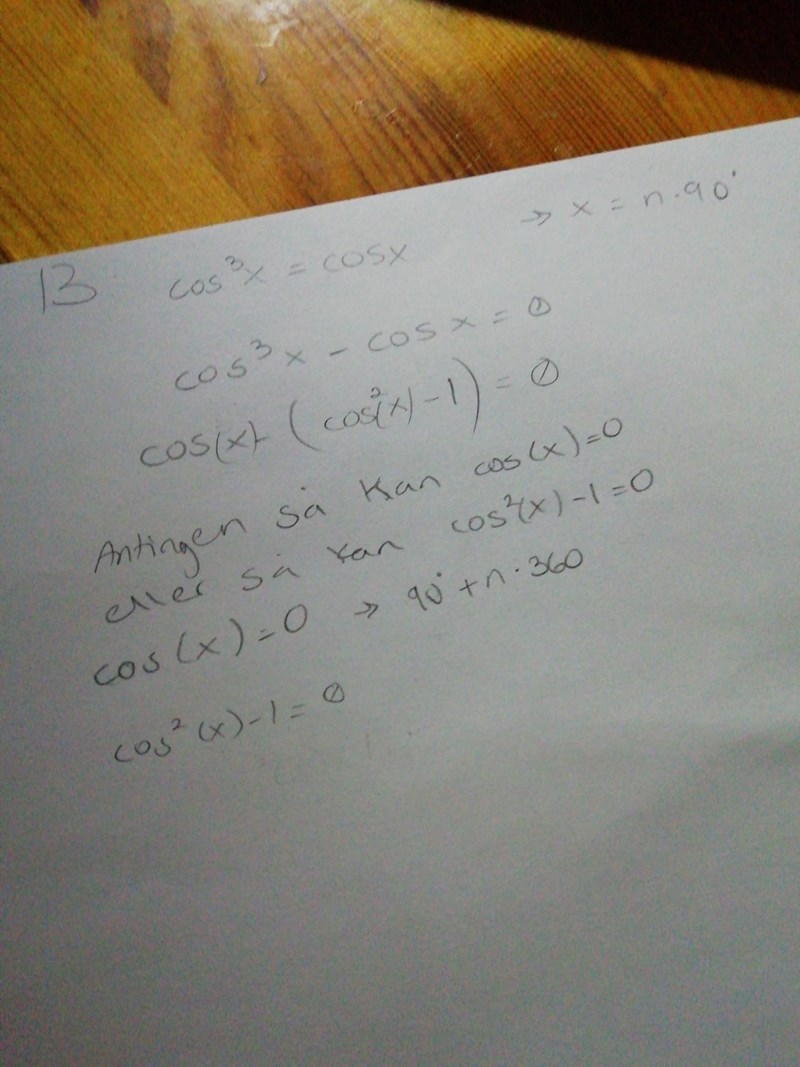 13 cos³x = cosx → x = n·90°
cos³x - cos x = 0
cos(x)·(cos²(x)-1) = 0
Antingen så kan cos(x)=0
eller så kan cos²(x)-1=0
cos(x)=0 → 90°+n·360
cos²(x)-1=0